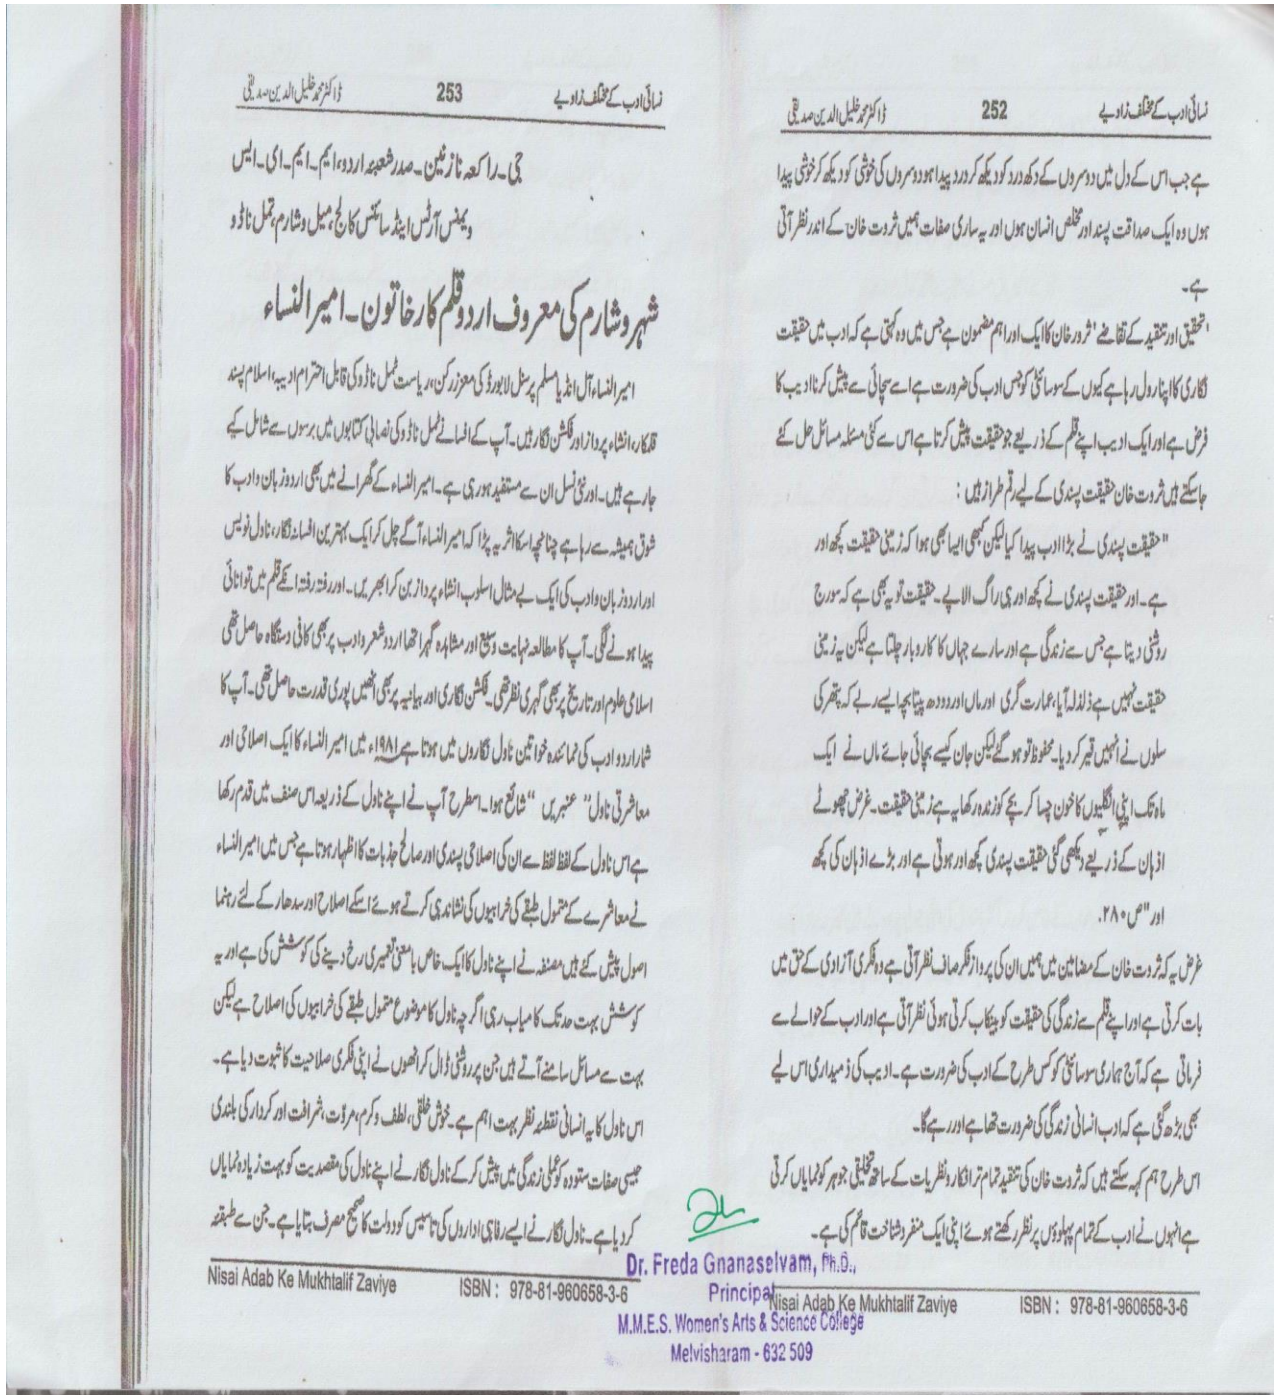 نسائی ادب کے مختلف زاویے 252 ڈاکٹر محمد خلیل الدین صدیقی
ہے جب اس کے دل میں دوسروں کے دکھ درد کو دیکھ کر درد پیدا ہو دوسروں کی خوشی کو دیکھ کر خوشی پیدا
ہوں وہ ایک صداقت پسند اور مخلص انسان ہوں اور یہ ساری صفات ہمیں ثروت خان کے اندر نظر آتی
ہے۔
'تحقیق اور تنقید کے تقاضے' ثرور خان کا ایک اور اہم مضمون ہے جس میں وہ کہتی ہے کہ ادب میں حقیقت
نگاری کا اپنا رول رہا ہے کیوں کے سوسائٹی کو جس ادب کی ضرورت ہے اسے سچائی سے پیش کرنا ادیب کا
فرض ہے اور ایک ادیب اپنے قلم کے ذریعے جو حقیقت پیش کرتا ہے اس سے کئی مسئلہ مسائل حل کئے
جاسکتے ہیں ثروت خان حقیقت پسندی کے لیے رقم طراز ہیں :
"حقیقت پسندی نے بڑا ادب پیدا کیا لیکن کبھی ایسا بھی ہوا کہ زمینی حقیقت کچھ اور
ہے۔ اور حقیقت پسندی نے کچھ اور ہی راگ الاپے۔ حقیقت تو یہ بھی ہے کہ سورج
روشنی دیتا ہے جس سے زندگی ہے اور سارے جہاں کا کاروبار چلتا ہے لیکن یہ زمینی
حقیقت نہیں ہے ذلذلہ آیا، عمارت گری اور ماں اور دودھ پیتا بچہ ایسے ربے کہ پتھر کی
سلوں نے انہیں قید کر دیا۔ محفوظ تو ہو گئے لیکن جان کیسے بچائی جائے ماں نے ایک
ماہ تک اپنی انگلیوں کا خون چسا کر بچے کو زندہ رکھا یہ ہے زمینی حقیقت۔ غرض چھوٹے
اذہان کے ذریعے دیکھی گئی حقیقت پسندی کچھ اور ہوتی ہے اور بڑے اذہان کی کچھ
اور" ص ۲۸۰.
غرض یہ کہ ثروت خان کے مضامین میں ہمیں ان کی پرواز فکر صاف نظر آتی ہے وہ فکری آزادی کے حق میں
بات کرتی ہے اور اپنے قلم سے زندگی کی حقیقت کو بیکاب کرتی ہوئی نظر آتی ہے اور ادب کے حوالے سے
فرماتی ہے کہ آج ہماری سوسائٹی کو کس طرح کے ادب کی ضرورت ہے۔ ادیب کی ذمیداری اس لیے
بھی بڑھ گئی ہے کہ ادب انسانی زندگی کی ضرورت تھا ہے اور رہے گا۔
اس طرح ہم کہہ سکتے ہیں کہ ثروت خان کی تنقید تمام تر افکار و نظریات کے ساتھ تخلیقی جوہر کو نمایاں کرتی
ہے انہوں نے ادب کے تمام پہلوؤں پر نظر رکھتے ہوئے اپنی ایک منفرد شناخت قائم کی ہے۔
Nisai Adab Ke Mukhtalif Zaviye ISBN : 978-81-960658-3-6
نسائی ادب کے مختلف زاویے 253 ڈاکٹر محمد خلیل الدین صدیقی
جی۔ راکعہ نازنین۔ صدر شعبۂ اردو، ایم۔ ایم۔ ای۔ ایس
ویمنس آرٹس اینڈ سائنس کالج، میل وشارم، تمل ناڈو
شہر وشارم کی معروف اردو قلم کار خاتون۔ امیر النساء
امیر النساء، آل انڈیا مسلم پرسنل لا بورڈ کی معزز رکن، ریاست تمل ناڈو کی قابل احترام ادیبہ، اسلام پسند
قلمکار، انشاء پرداز اور فکشن نگار ہیں۔ آپ کے افسانے تمل ناڈو کی نصابی کتابوں میں برسوں سے شامل کیے
جارہے ہیں۔ اور نئی نسل ان سے مستفید ہورہی ہے۔ امیر النساء کے گھرانے میں بھی اردو زبان و ادب کا
شوق ہمیشہ سے رہا ہے چنانچہ اسکا اثر یہ پڑا کہ امیر النساء آگے چل کر ایک بہترین افسانہ نگار، ناول نویس
اور اردو زبان و ادب کی ایک بے مثال اسلوب انشاء پرداز بن کر ابھریں۔ اور رفتہ رفتہ انکے قلم میں توانائی
پیدا ہونے لگی۔ آپ کا مطالعہ نہایت وسیع اور مشاہدہ گہرا تھا اردو شعر و ادب پر بھی کافی دستگاہ حاصل تھی
اسلامی علوم اور تاریخ پر بھی گہری نظر تھی۔ فکشن نگاری اور بیانیہ پر بھی انھیں پوری قدرت حاصل تھی۔ آپ کا
شمار اردو ادب کی نمائندہ خواتین ناول نگاروں میں ہوتا ہے ۱۹۸۱ء میں امیر النساء کا ایک اصلاحی اور
معاشرتی ناول" عنبریں "شائع ہوا۔ اسطرح آپ نے اپنے ناول کے ذریعہ اس صنف میں قدم رکھا
ہے اس ناول کے لفظ لفظ سے ان کی اصلاحی پسندی اور صالح جذبات کا اظہار ہوتا ہے جس میں امیر النساء
نے معاشرے کے متمول طبقے کی خرابیوں کی نشاندہی کرتے ہوئے اسکے اصلاح اور سدھار کے لئے رہنما
اصول پیش کئے ہیں مصنفہ نے اپنے ناول کا ایک خاص بامعنی تعمیری رخ دینے کی کوشش کی ہے اور یہ
کوشش بہت حد تک کامیاب رہی اگرچہ ناول کا موضوع متمول طبقے کی خرابیوں کی اصلاح ہے لیکن
بہت سے مسائل سامنے آتے ہیں جن پر روشنی ڈال کر انھوں نے اپنی فکری صلاحیت کا ثبوت دیا ہے۔
اس ناول کا یہ انسانی نقطۂ نظر بہت اہم ہے۔ خوش خلقی، لطف و کرم، مروّت، شرافت اور کردار کی بلندی
جیسی صفات ستودہ کو عملی زندگی میں پیش کر کے ناول نگار نے اپنے ناول کی مقصدیت کو بہت زیادہ نمایاں
کردیا ہے۔ ناول نگار نے ایسے رفاہی اداروں کی تاسیس کو دولت کا صحیح مصرف بتایا ہے۔ جن سے طبقۂ
Nisai Adab Ke Mukhtalif Zaviye ISBN : 978-81-960658-3-6
Dr. Freda Gnanaselvam, Ph.D.,
Principal
M.M.E.S. Women's Arts & Science College
Melvisharam - 632 509